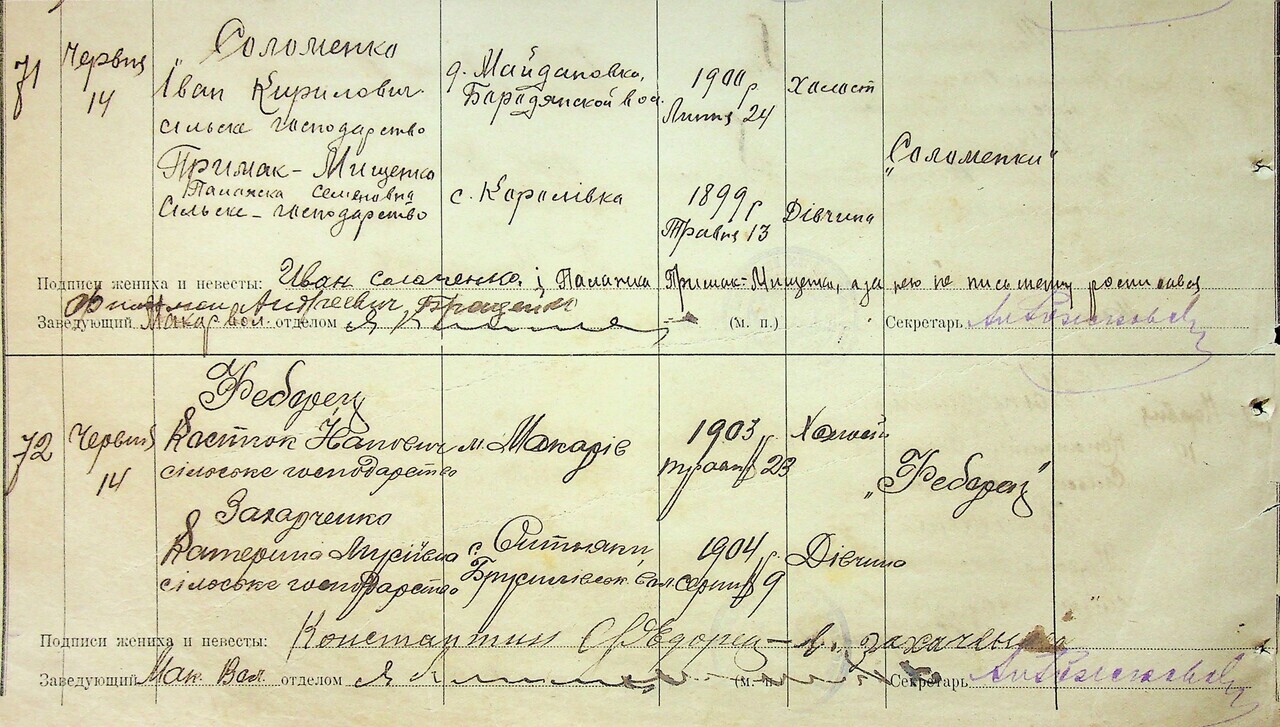 71 Червня 14
Соломенко
Іван Кирилович
сільске господарство
д. Майдановка,
Бародянской вол.
1900 р.
Липня 24
Холост
Примак-Мищенко
Палажка Семеновна
сільске-господарство
с. Королівка
1899 р.
Травня 13
Дівчина
"Соломенки"
Подписи жениха и невесты: Иван і Палажка Примак-Мищенко, а за нею не письмену росписався
Андреевич
Заведующий Макар вол. отделом (м. п.) Секретарь
72 Червня 14
Федорец
Костюк
сілоське господарство
м. Макарів
1903 р.
травня 23
Холост
Захарченко
Катерина Мусіївна
сілоське господарство
с. Ситняки,
Брусилівськ. вол.
1904 р.
серпня 9
Дівчина
"Федорец"
Подписи жениха и невесты: Константин Федорец
Заведующий Мак Вол отделом (м. п.) Секретарь